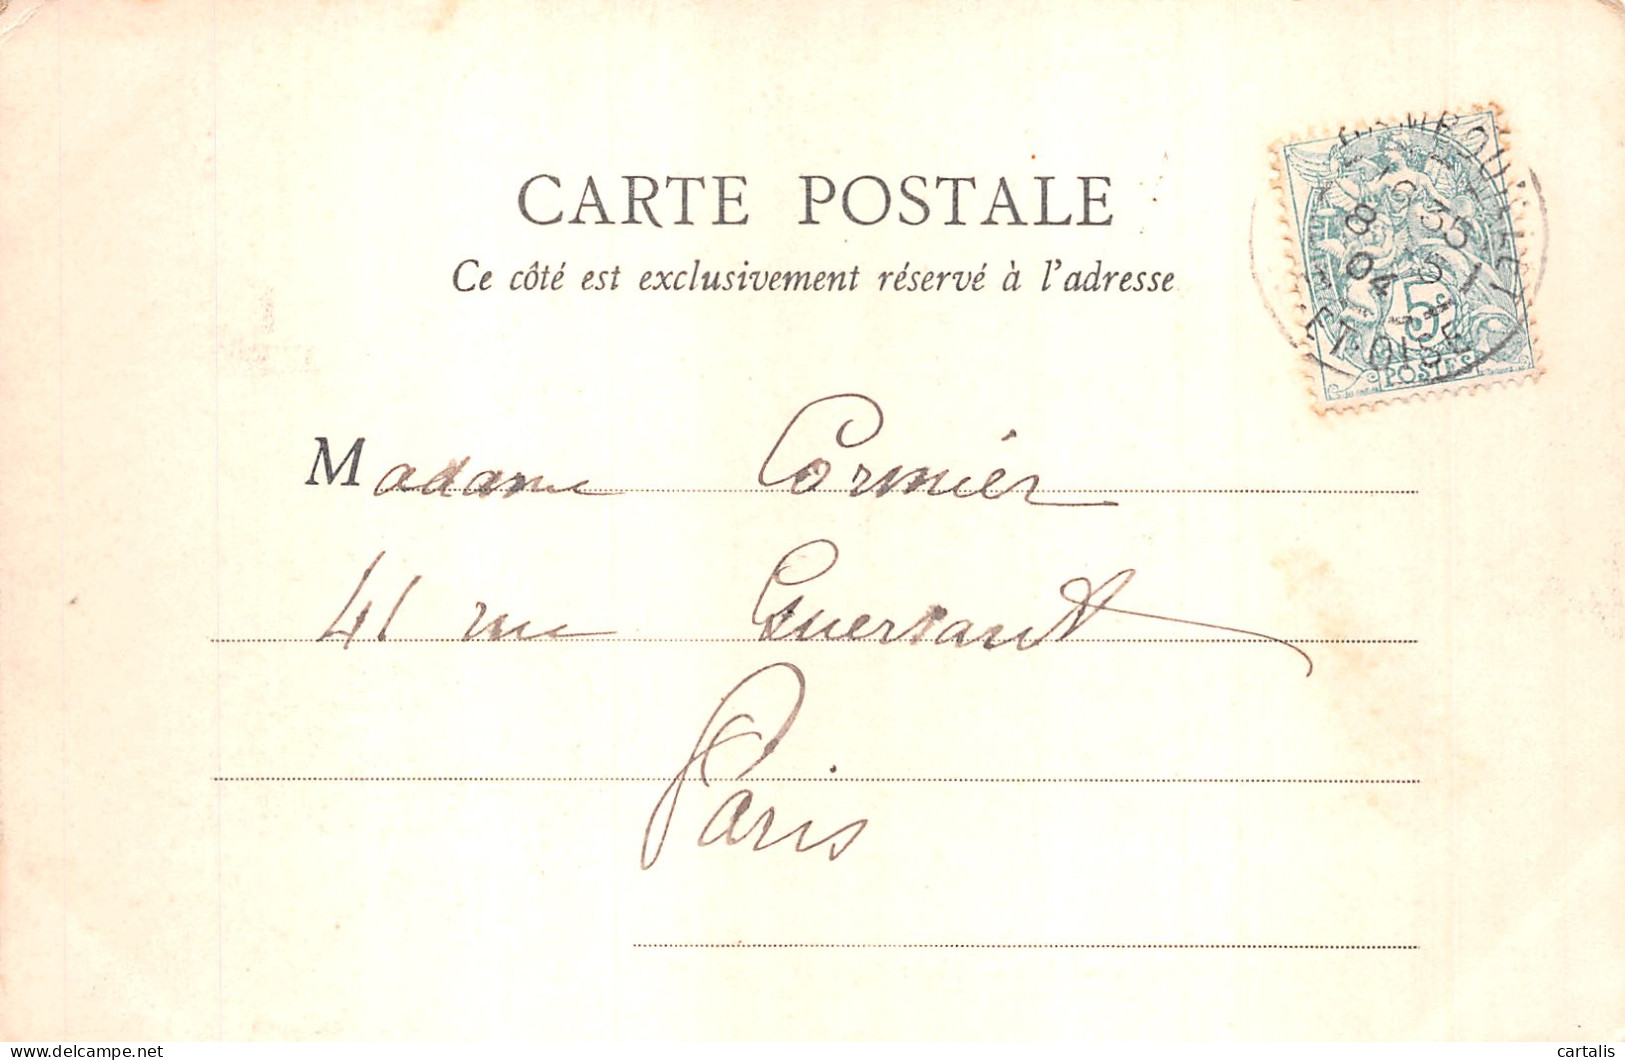 CARTE POSTALE
Ce côté est exclusivement réservé à l'adresse
RAMBOUILLET
8 35
5
04
ET-OISE
5
POSTES
Madame Cormier
41 rue Guersant
Paris
www.delcampe.net
cartalis